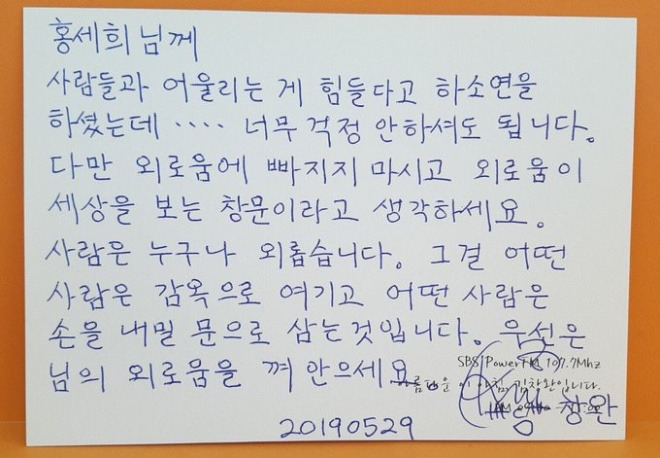 홍세희님께
사람들과 어울리는 게 힘들다고 하소연을
하셨는데 ···· 너무 걱정 안하셔도 됩니다.
다만 외로움에 빠지지 마시고 외로움이
세상을 보는 창문이라고 생각하세요.
사람은 누구나 외롭습니다. 그걸 어떤
사람은 감옥으로 여기고 어떤 사람은
손을 내밀 문으로 삼는것입니다. 우선은
님의 외로움을 껴 안으세요
SBS PowerFM 107.7Mhz
아름다운 이 아침, 김창완입니다.
창완
20190529